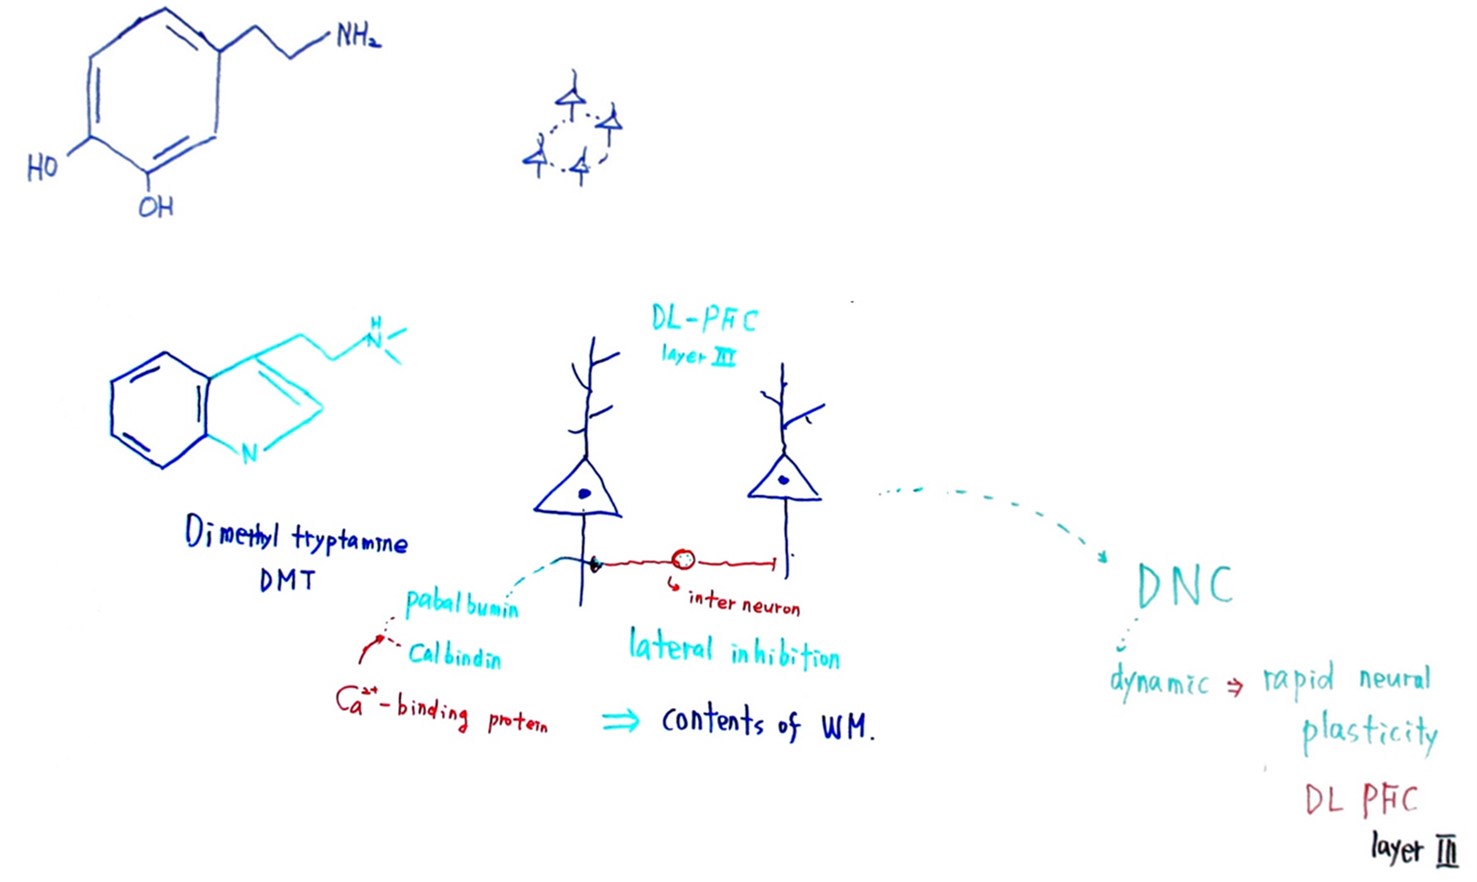 NH₂
HO
OH
DL-PFC
layer III
H
N
N
Dimethyl tryptamine
DMT
pabalbumin
Calbindin
Ca²⁺-binding protein
inter neuron
lateral inhibition
⇒ contents of WM.
DNC
dynamic ⇒ rapid neural
plasticity
DL PFC
layer III